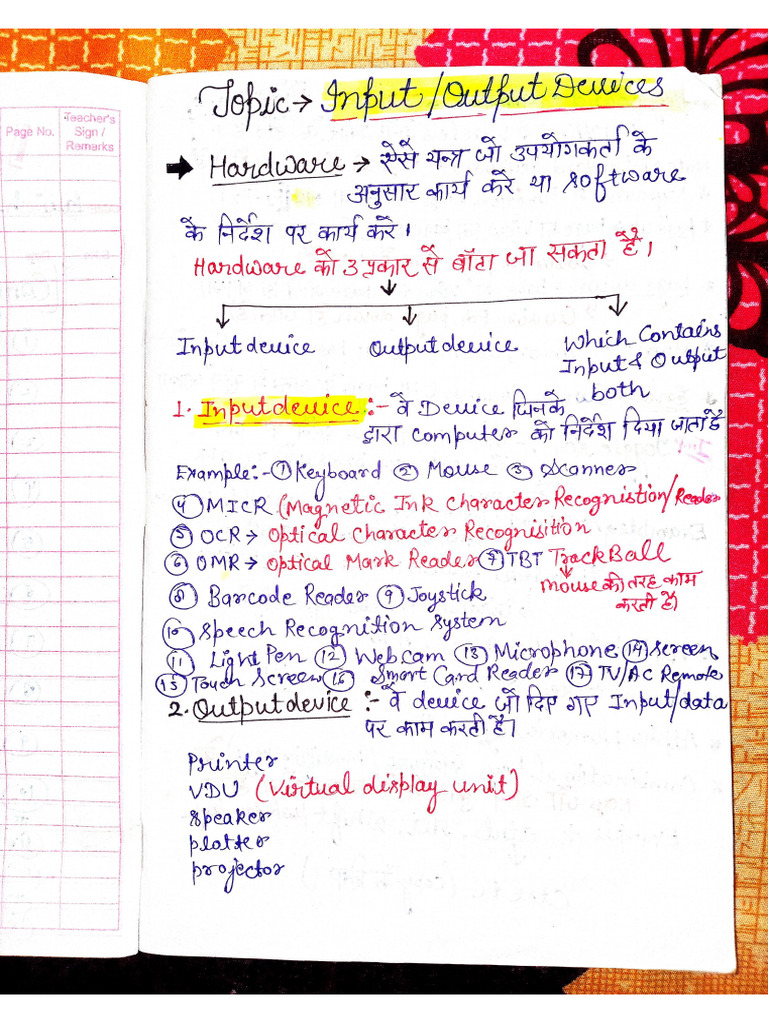 Page No.
Teacher's
Sign /
Remarks
Topic → Input/Output Devices
➡ Hardware → ऐसे यन्त्र जो उपयोगकर्ता के
अनुसार कार्य करे या software
के निर्देश पर कार्य करे।
Hardware को 3 प्रकार से बाँटा जा सकता है।
Input device Output device Which Contains
Input & Output
both
1. Input device :- वे Device जिनके
द्वारा Computer को निर्देश दिया जाता है
Example:- ① Keyboard ② Mouse ③ Scanner
④ MICR (Magnetic Ink Character Recognistion/Reader
⑤ OCR → Optical Character Recognisition
⑥ OMR → Optical Mark Reader ⑦ TBT TrackBall
Mouse की तरह काम
करती है।
⑧ Barcode Reader ⑨ Joystick
⑩ Speech Recognition System
⑪ Light Pen ⑫ Web Cam ⑬ Microphone ⑭ Screen
⑮ Touch Screen ⑯ Smart Card Reader ⑰ TV/AC Remote
2. Output device :- वे device जो दिए गए Input/data
पर काम करती है।
Printer
VDU (Virtual display unit)
Speaker
platter
projector